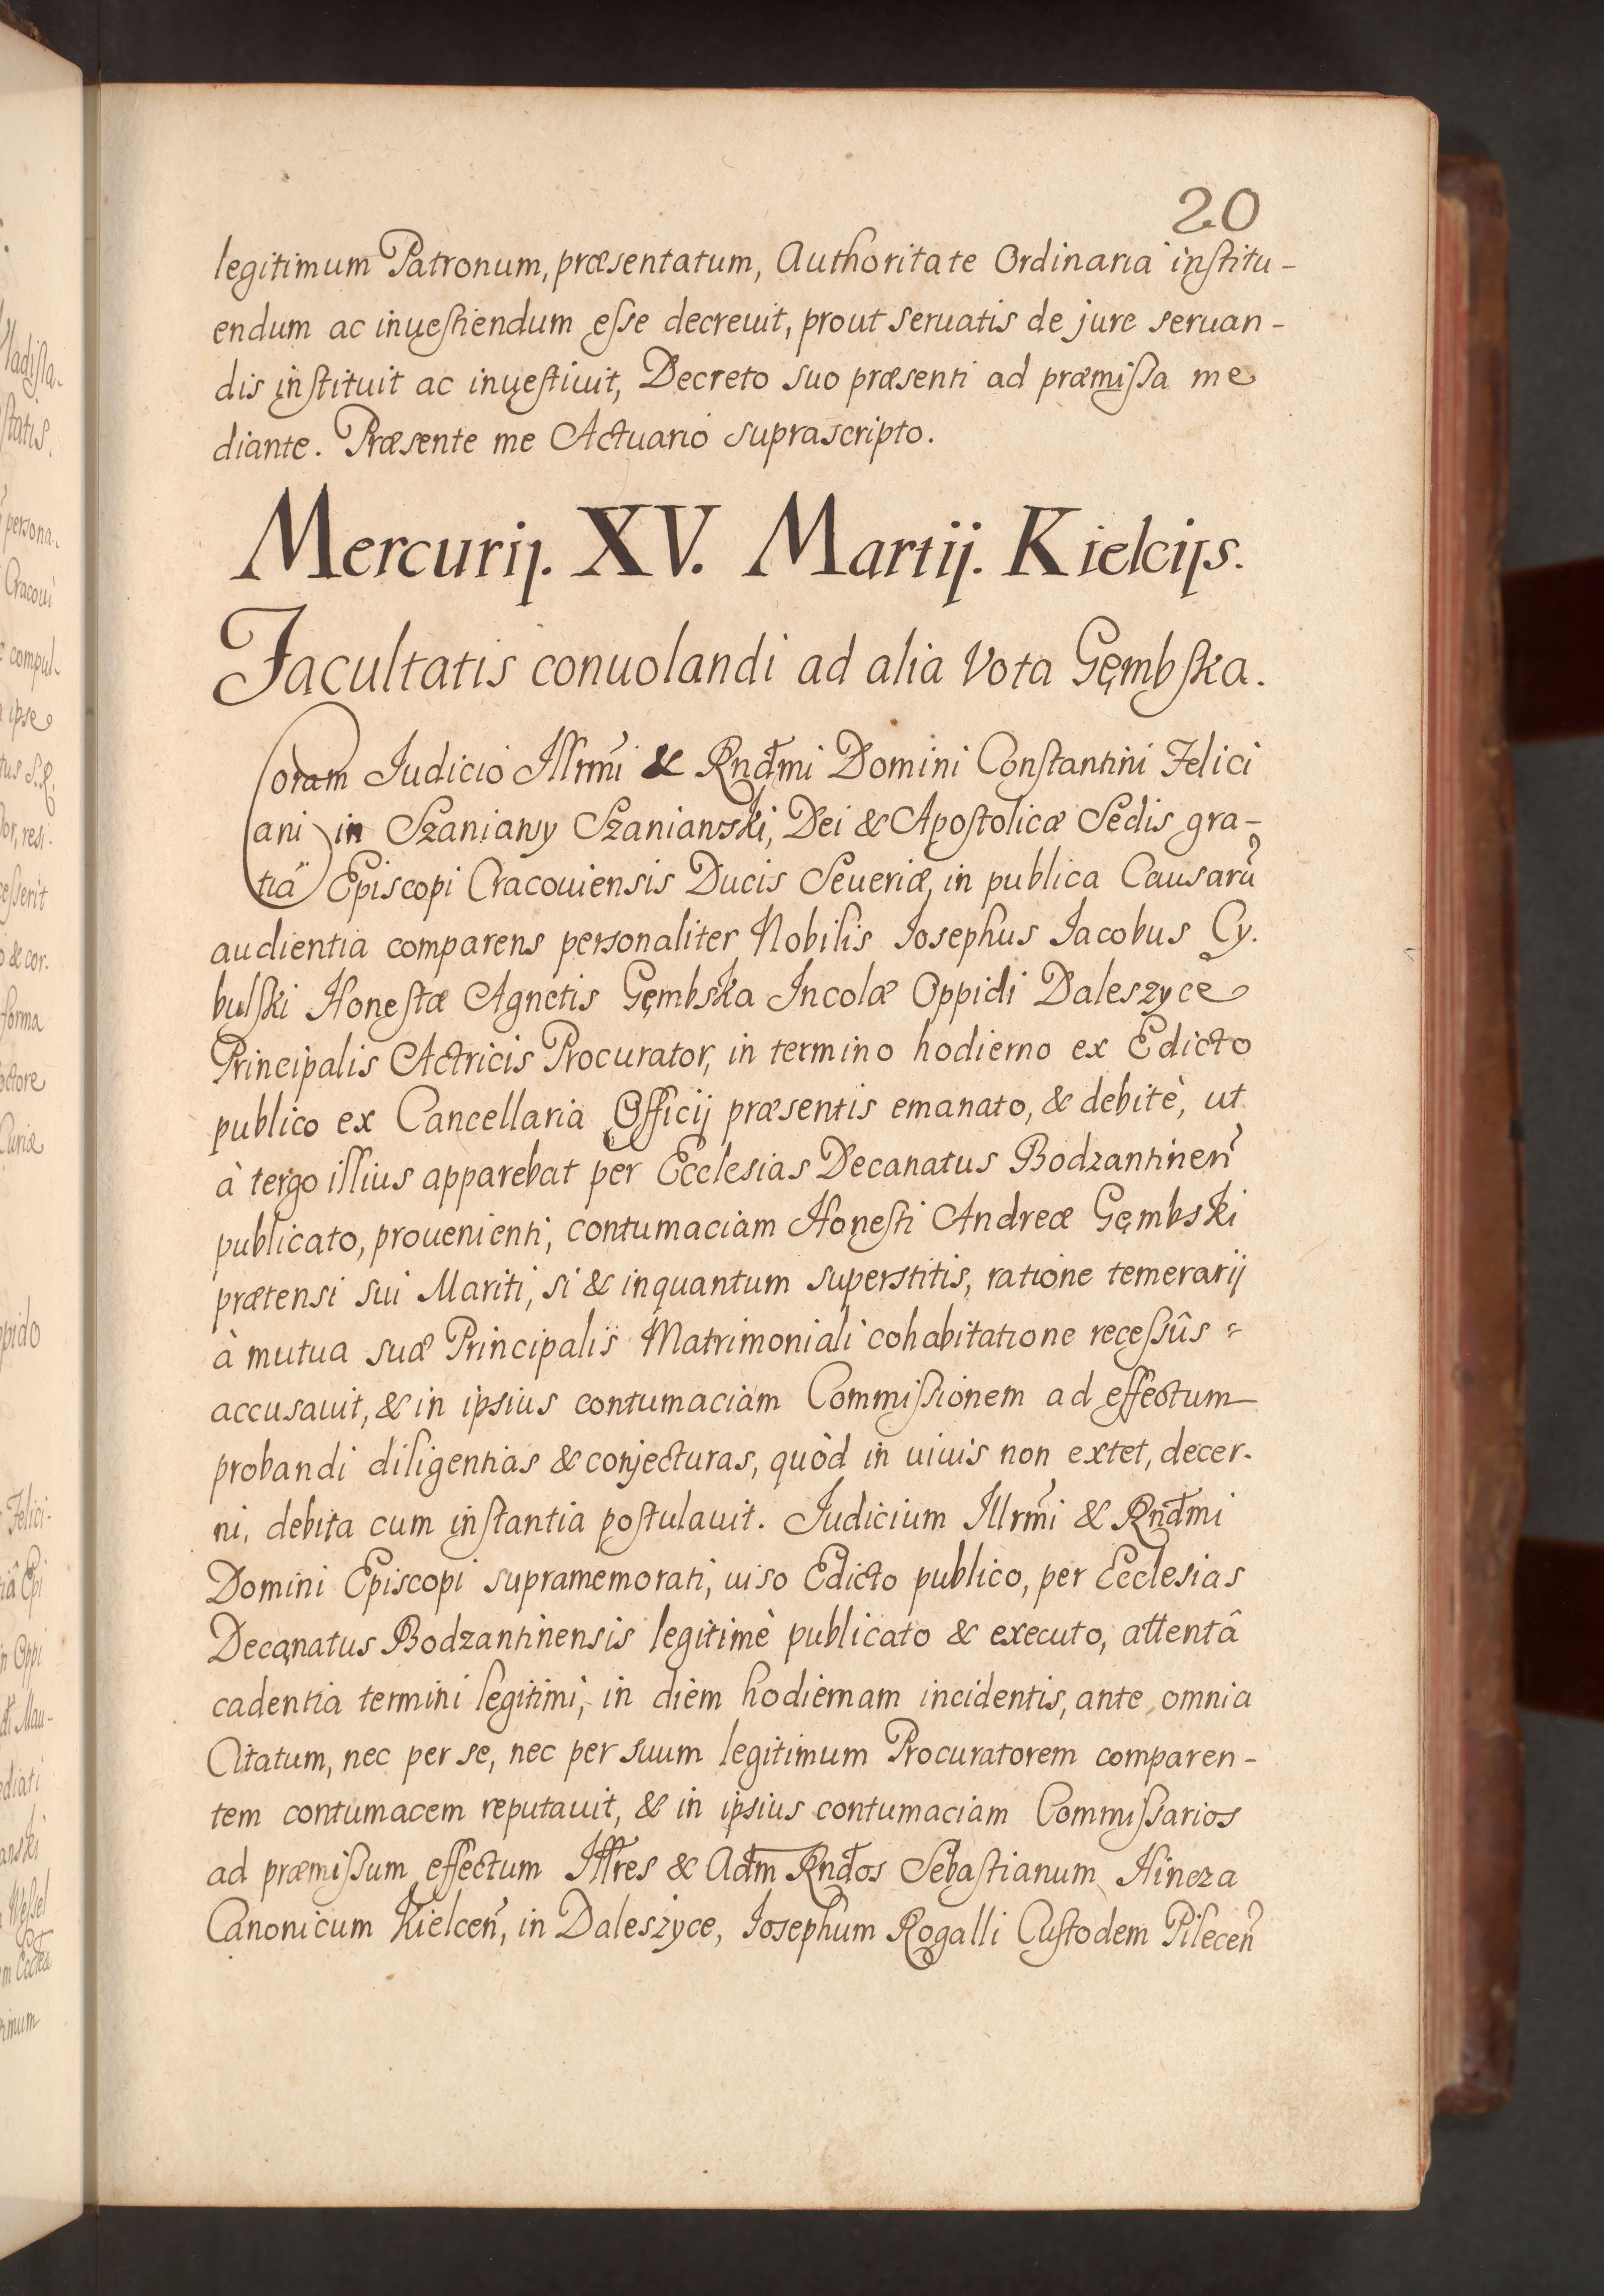 20
legitimum Patronum, præsentatum, Authoritate Ordinaria institu-
endum ac inuestiendum esse decreuit, prout seruatis de jure seruan-
dis instituit ac inuestiuit, Decreto suo præsenti ad præmissa me
diante. Præsente me Actuario suprascripto.
Mercurij. XV. Martij. Kielcijs.
Facultatis conuolandi ad alia Vota Gęmbska.
Coram Judicio Illrmi & Rndmi Domini Constantini Felici
ani in Szaniawy Szaniawski, Dei & Apostolicæ Sedis gra-
tiâ Episcopi Cracouiensis Ducis Seueriæ, in publica Causarũ
audientia comparens personaliter Nobilis Josephus Jacobus Cy.
bulski Honestæ Agnetis Gęmbska Incolæ Oppidi Daleszyce
Principalis Actricis Procurator, in termino hodierno ex Edicto
publico ex Cancellaria Officij præsentis emanato, & debitè, ut
à tergo illius apparebat per Ecclesias Decanatus Bodzantinen̄
publicato, prouenienti, contumaciam Honesti Andreæ Gęmbski
prætensi sui Mariti, si & inquantum superstitis, ratione temerarij
à mutua suæ Principalis Matrimoniali cohabitatione recessûs
accusauit, & in ipsius contumaciam Commissionem ad effectum
probandi diligentias & conjecturas, quòd in uiuis non extet, decer-
ni, debita cum instantia postulauit. Judicium Illrmi & Rndmi
Domini Episcopi supramemorati, uiso Edicto publico, per Ecclesias
Decanatus Bodzantinensis legitimè publicato & executo, attentâ
cadentia termini legitimi, in diem hodiernam incidentis, ante omnia
Citatum, nec per se, nec per suum legitimum Procuratorem comparen-
tem contumacem reputauit, & in ipsius contumaciam Commissarios
ad præmissum effectum Illres & Adm Rndos Sebastianum Hincza
Canonicum Kielcen̄, in Daleszyce, Josephum Rogalli Custodem Pilecen̄